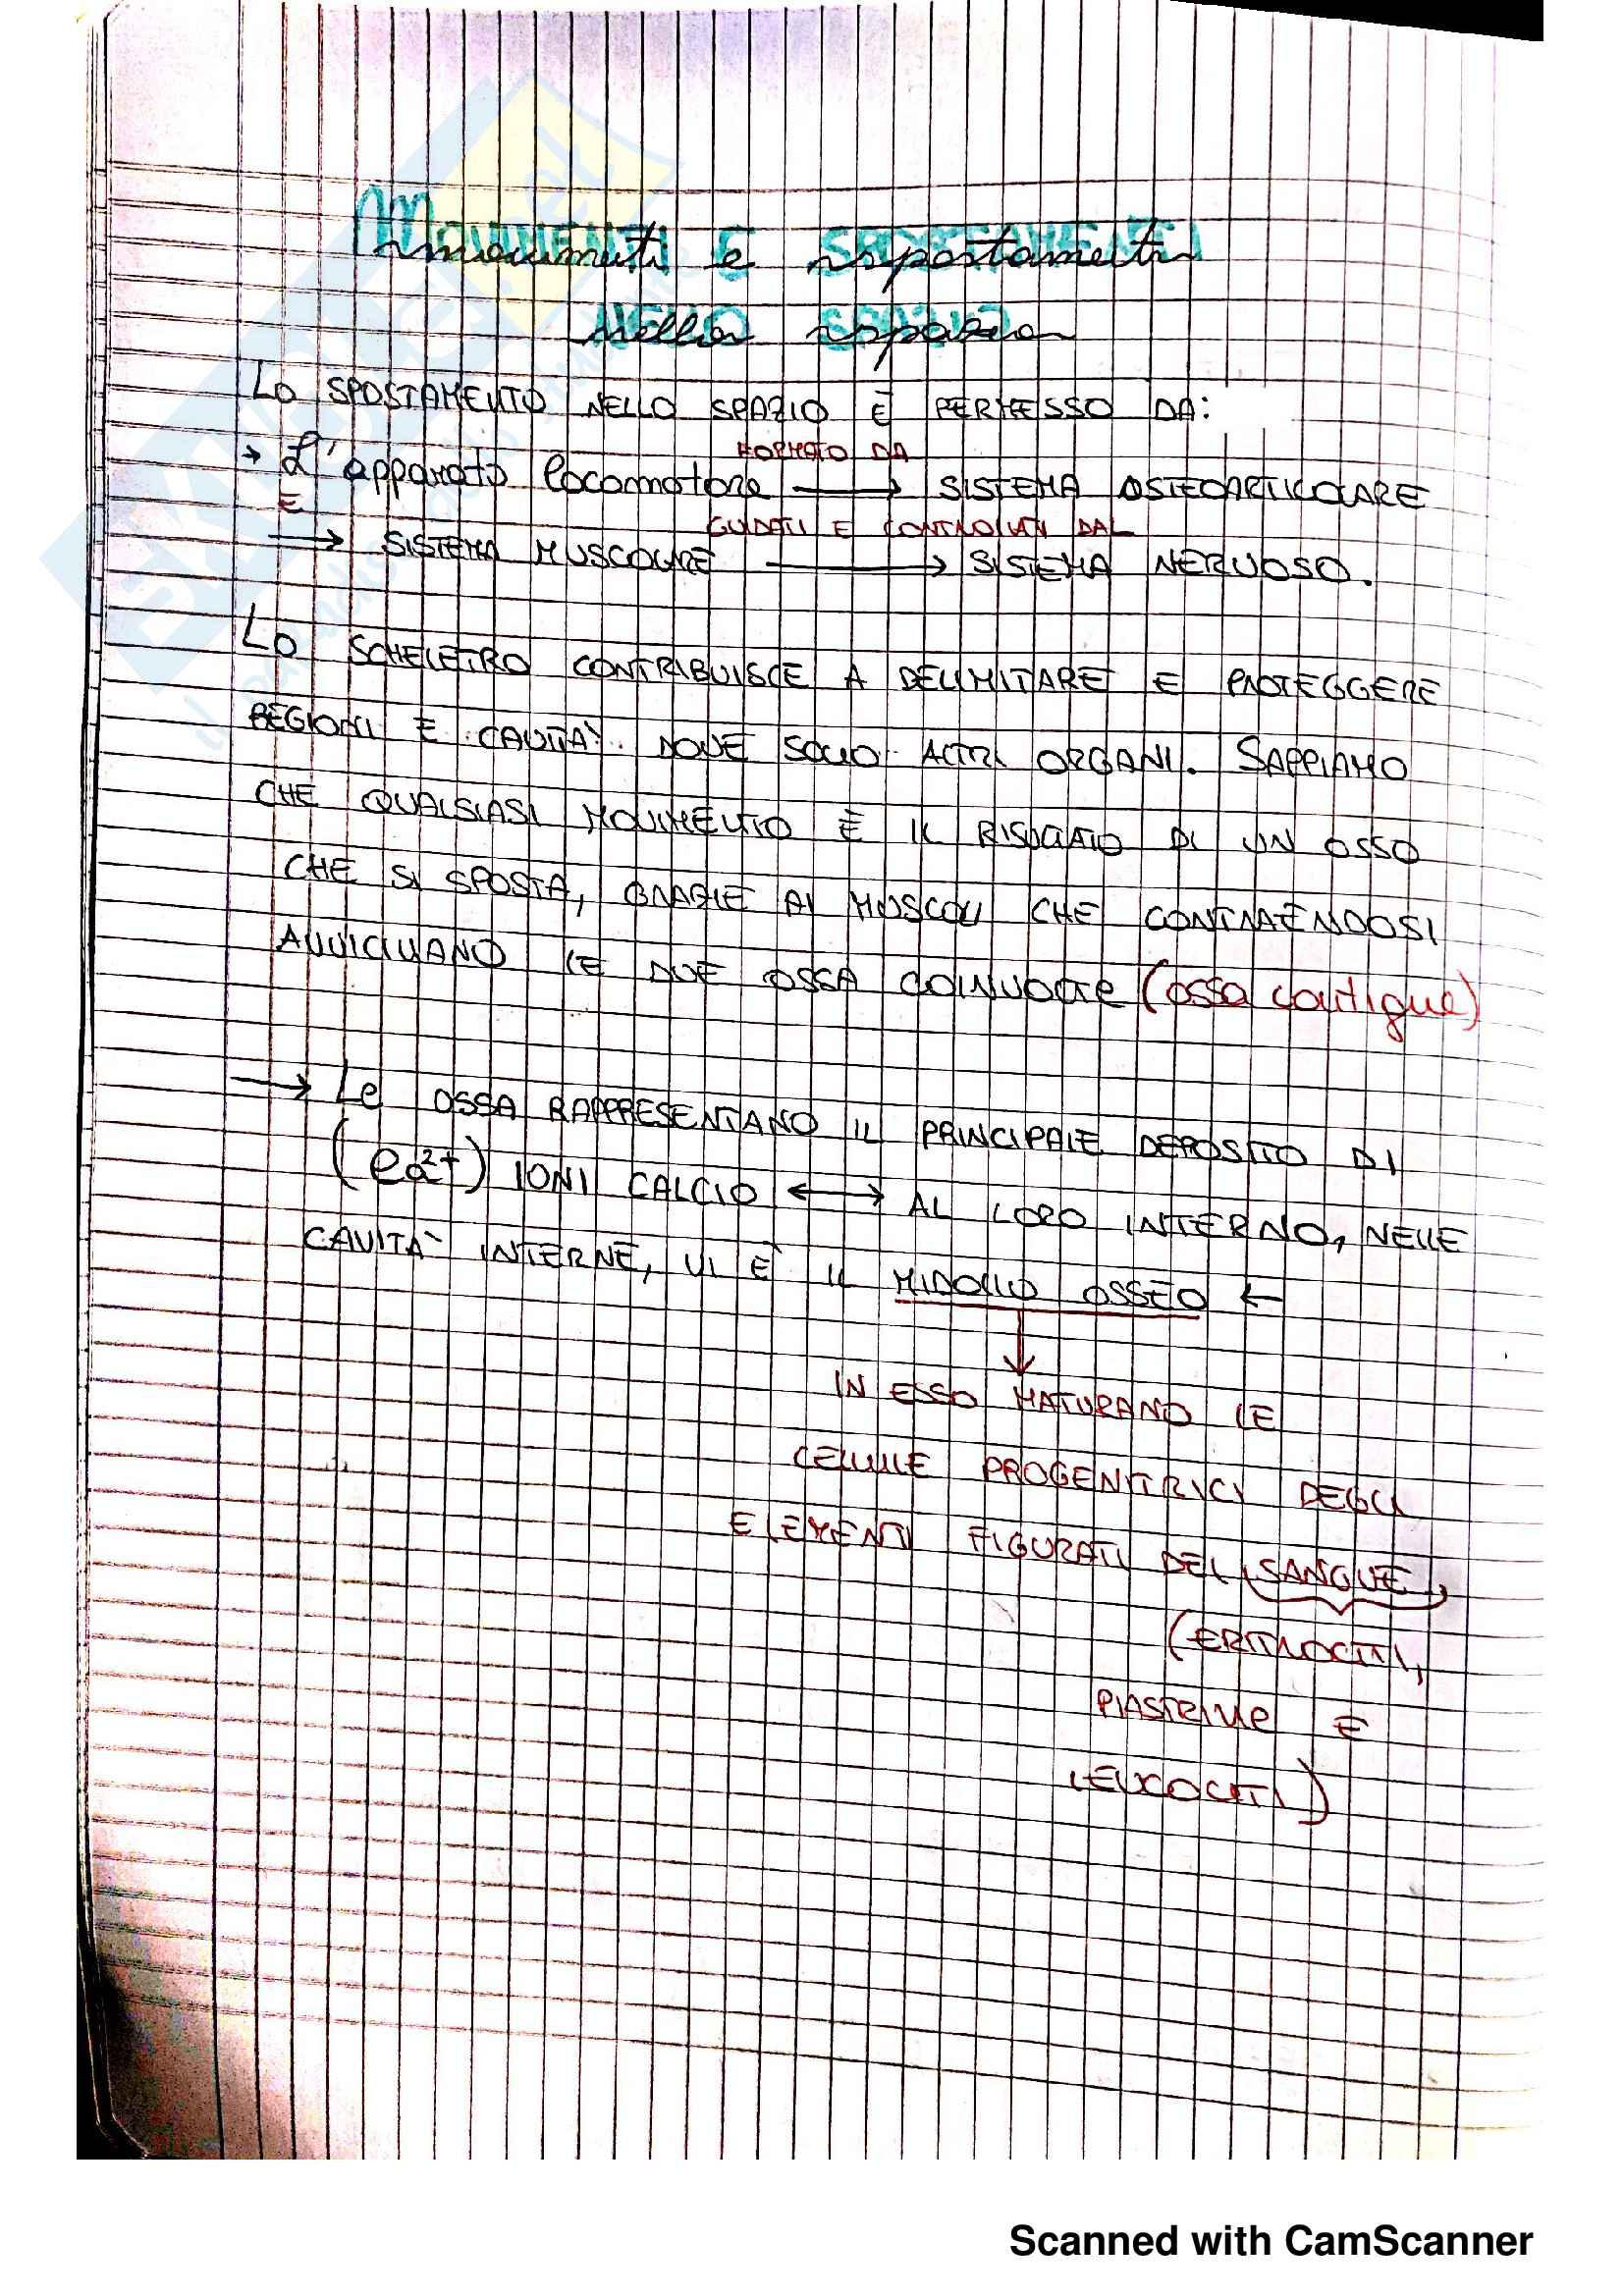 Movimenti e spostamenti
nello spazio
LO SPOSTAMENTO NELLO SPAZIO È PERMESSO DA:
FORMATO DA
→ L'apparato locomotore → SISTEMA OSTEOARTICOLARE
E GUIDATI E CONTROLLATI DAL
→ SISTEMA MUSCOLARE → SISTEMA NERVOSO.
LO SCHELETRO CONTRIBUISCE A DELIMITARE E PROTEGGERE
REGIONI E CAVITÀ DOVE SONO ALTRI ORGANI. SAPPIAMO
CHE QUALSIASI MOVIMENTO È IL RISULTATO DI UN OSSO
CHE SI SPOSTA, GRAZIE AI MUSCOLI CHE CONTRAENDOSI
AVVICINANO LE DUE OSSA COINVOLTE (ossa contigue)
→ Le OSSA RAPPRESENTANO IL PRINCIPALE DEPOSITO DI
(Ca²⁺) IONI CALCIO ↔ AL LORO INTERNO, NELLE
CAVITÀ INTERNE, VI È IL MIDOLLO OSSEO ←
IN ESSO MATURANO LE
CELLULE PROGENITRICI DEGLI
ELEMENTI FIGURATI DEL SANGUE,
(ERITROCITI,
PIASTRINE E
LEUCOCITI)
Scanned with CamScanner